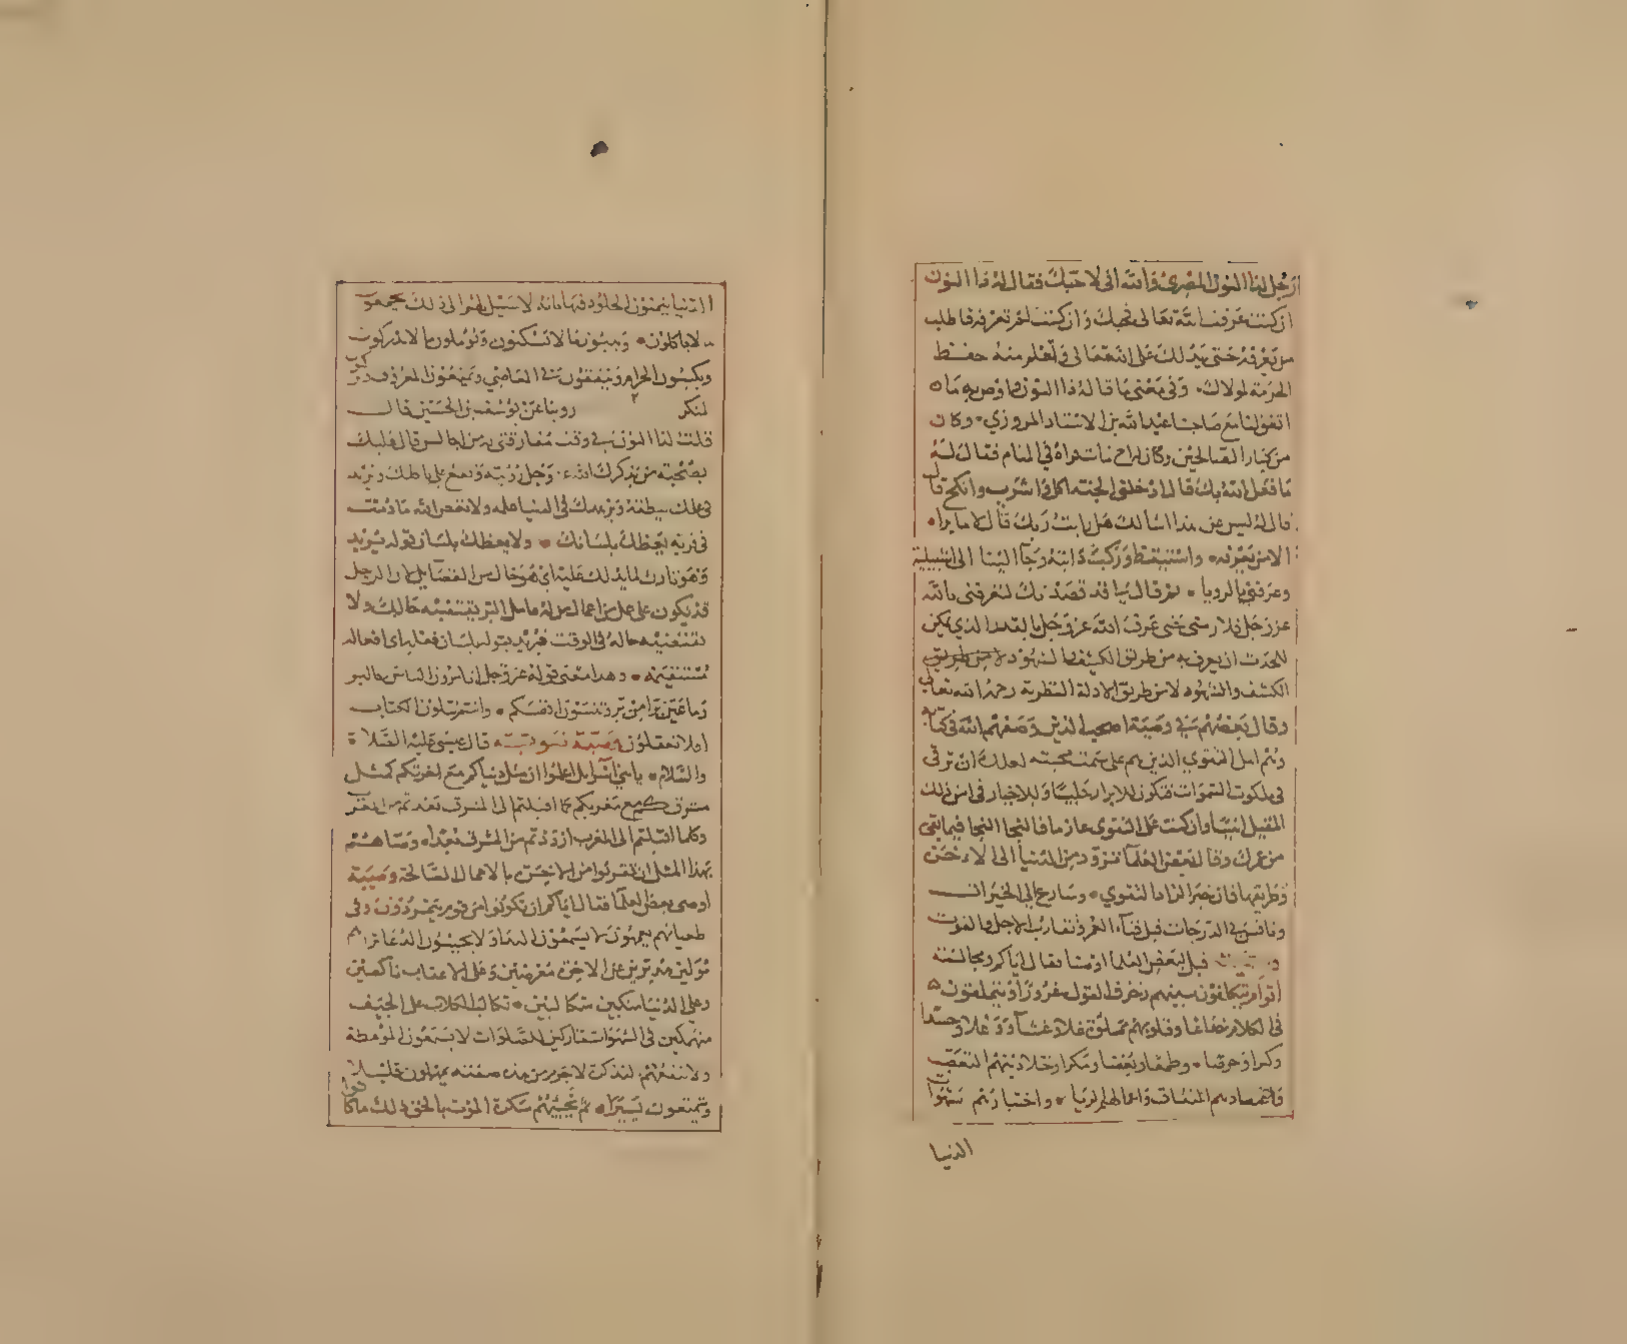 رجل لذا النون المصري والله اني لاحبك فقال له ذا النون
ان كنت عرفت الله تعالى فحسبك وان كنت لم تعرفه فاطلب
من يعرفه حتى يدلك على الله تعالى وتعلم منه حفظ
الحرمة لمولاك وفي معنى ما قاله ذا النون ما اوصى به ما
اتفق لنا مع صاحبنا عبد الله بن الاستاد المروزي وكان
من كبار الصالحين وكان له اخ مات فراه في المنام فقال له
ما فعل الله بك قال ادخلني الجنة اكل واشرب وانكح قال
قال له ليس عن هذا اسالك هل رايت ربك قال لا ما يراه
الا من يعرفه واستيقظ وركب دابته وجا الينا الى اشبيلية
وعرفني بالرويا ثم قال لي قد قصدتك لتعرفني بالله
عز وجل فلازمني حتى عرف الله عز وجل بالقدر الذي يمكن
للمحدث ان يعرف به من طريق الكشف والشهود لا من طريق
الكشف والشهود لا من طريق الادلة النظرية رحمه الله تعالى
وقال بعضهم في وصيته اصحب الذين وصفهم الله في كتابه
وهم اهل التقوي الذين هم على سمت محبته لعلك ان ترقى
في ملكوت السموات فتكون للابرار جليسا وللاخيار في امن ذلك
المقيل انيسا وان كنت على التقوى عازما فالنجا النجا فيما بقي
من عمرك وقال بعض العلما تزود من الدنيا الى الاخرة
وطريقها فان خير الزاد التقوي وسارع الى الخيرات
ونافس في الدرجات قبل فناء العمر وتقارب الاجل والفوت
قيل لبعض العلما اوصنا فقال اياكم ومجالسة
اقوام يتكلفون بينهم زخرف القول غرورا ويتملقون
في الكلام خداعا وقلوبهم مملوة غلا وغشا ودغلا وحسدا
وكبرا وحرصا وطمعا وبغضا ومكرا وختلا دينهم التعصب
واعتقادهم النفاق واعمالهم الريا واختيارهم شهوات
الدنيا
الدنيا يتمنون الخلود فيها مع انه لا سبيل لهم الى ذلك يجمعون
ما لا ياكلون ويبنون ما لا يسكنون ويوملون ما لا يدركون
ويكسبون الحرام وينفقون في المعاصي ويمنعون المعروف ويركبون
المنكر روينا عن يوسف بن الحسين قال
قلت لذا النون في وقت مفارقتي له من اجالس قال عليك
بصحبة من يذكرك الله عز وجل رويته وتقع على باطنك
في عملك منطقه ويزهدك في الدنيا عمله ولا تعصي الله ما دمت
في قربه يعظك بلسان ولا يعظك بلسان قوله يريد
وهو تارك لما يدلك عليه اي هو خال من الفضايل لان الرجل
قد يكون على عمل من اعمال البر يقتضيه حالك ولا
تقتضيه حاله في الوقت فيريد بقوله لسان فعله اي افعاله
مستقيمة وهذا معنى قوله عز وجل اتامرون الناس بالبر
وما عين برا من بر وتنسون انفسكم وانتم تتلون الكتاب
افلا تعقلون وصية نبوية قال عيسى عليه الصلاة
والسلام يا بني اسرايل اعلموا ان مثل دنياكم مع اخرتكم كمثل
مشرقكم مع مغربكم كلما اقبلتم الى المشرق بعدتم من المغرب
وكلما اقبلتم الى المغرب ازددتم من المشرق بعدا وصاهم
بهذا المثل ان يقربوا من الاخرة بالاعمال الصالحة وصية
اوصى بعض العلما فقال اياكم ان تكونوا من قوم يتمردون وفي
طغيانهم يعمهون لا يسمعون الندا ولا يجيبون الدعا تراهم
مولين مدبرين عن الاخرة معرضين وعلى الاعقاب ناكصين
وعلى الدنيا منكبين متكالبين تكالب الكلاب على الجيف
منهمكين في الشهوات تاركين للصلوات لا يسمعون الموعظة
ولا تنفعهم التذكرة لا جرم من هذه صفته يمهلون قليلا
ويتمتعون يسيرا ثم تجيئهم سكرة الموت بالحق ذلك ما كانوا